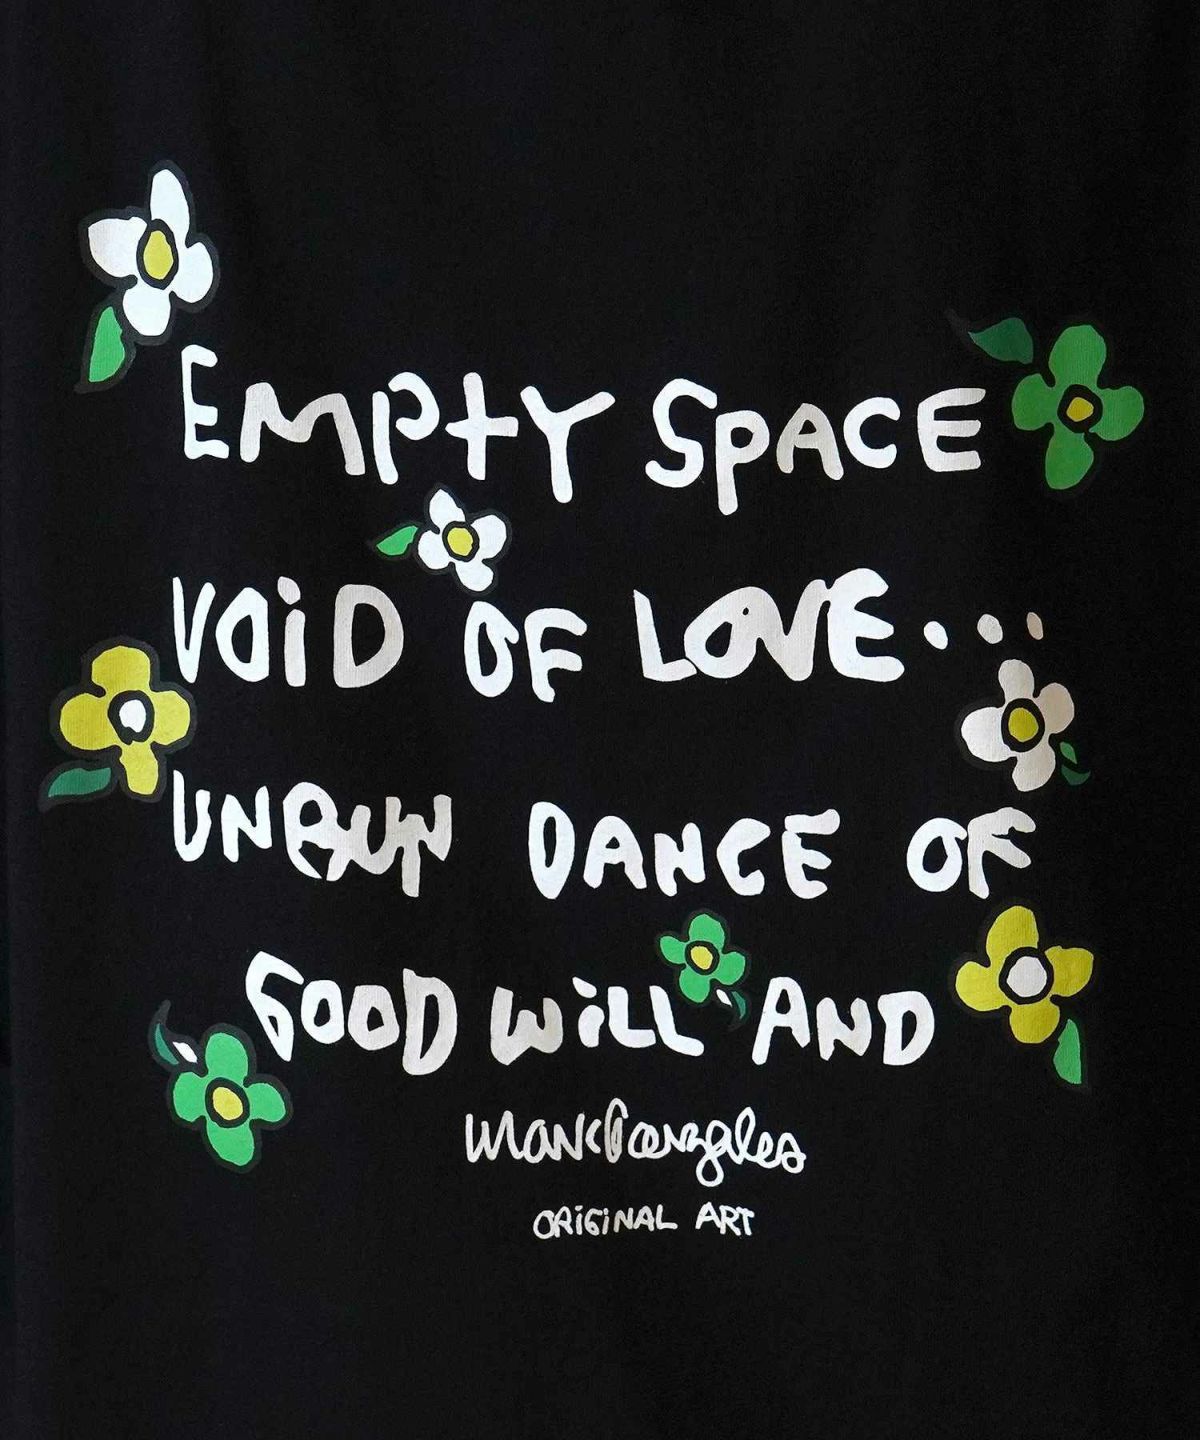 EMPTY SPACE
VOiD OF LOVE...
DANCE OF
GOOD WiLL AND
MarkGonzales
ORiGiNAL ART